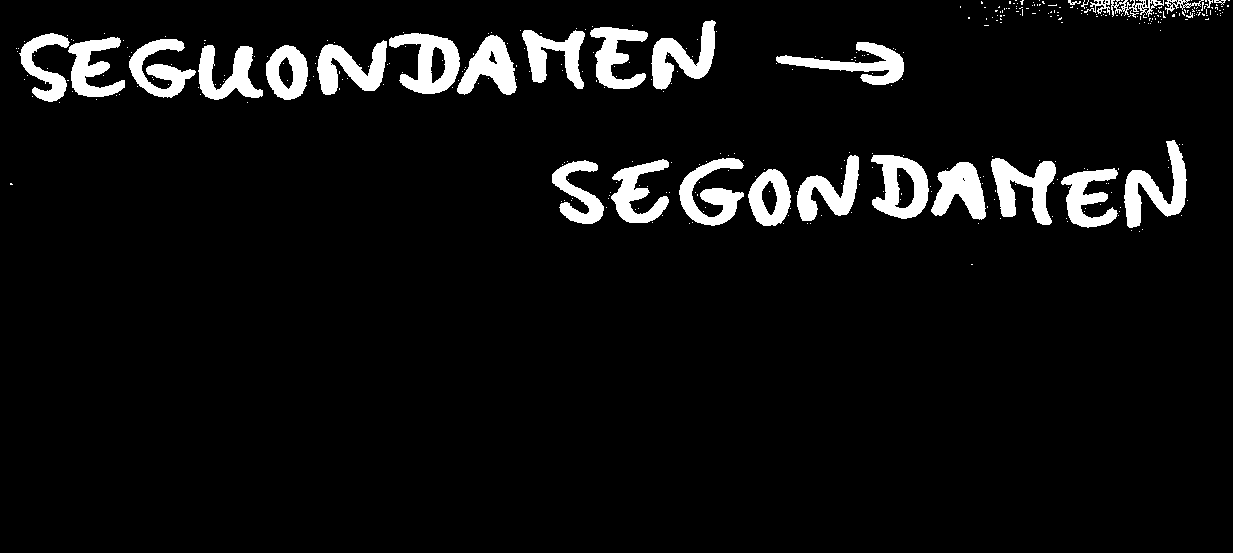 SEGUONDAMEN →
SEGONDAMEN